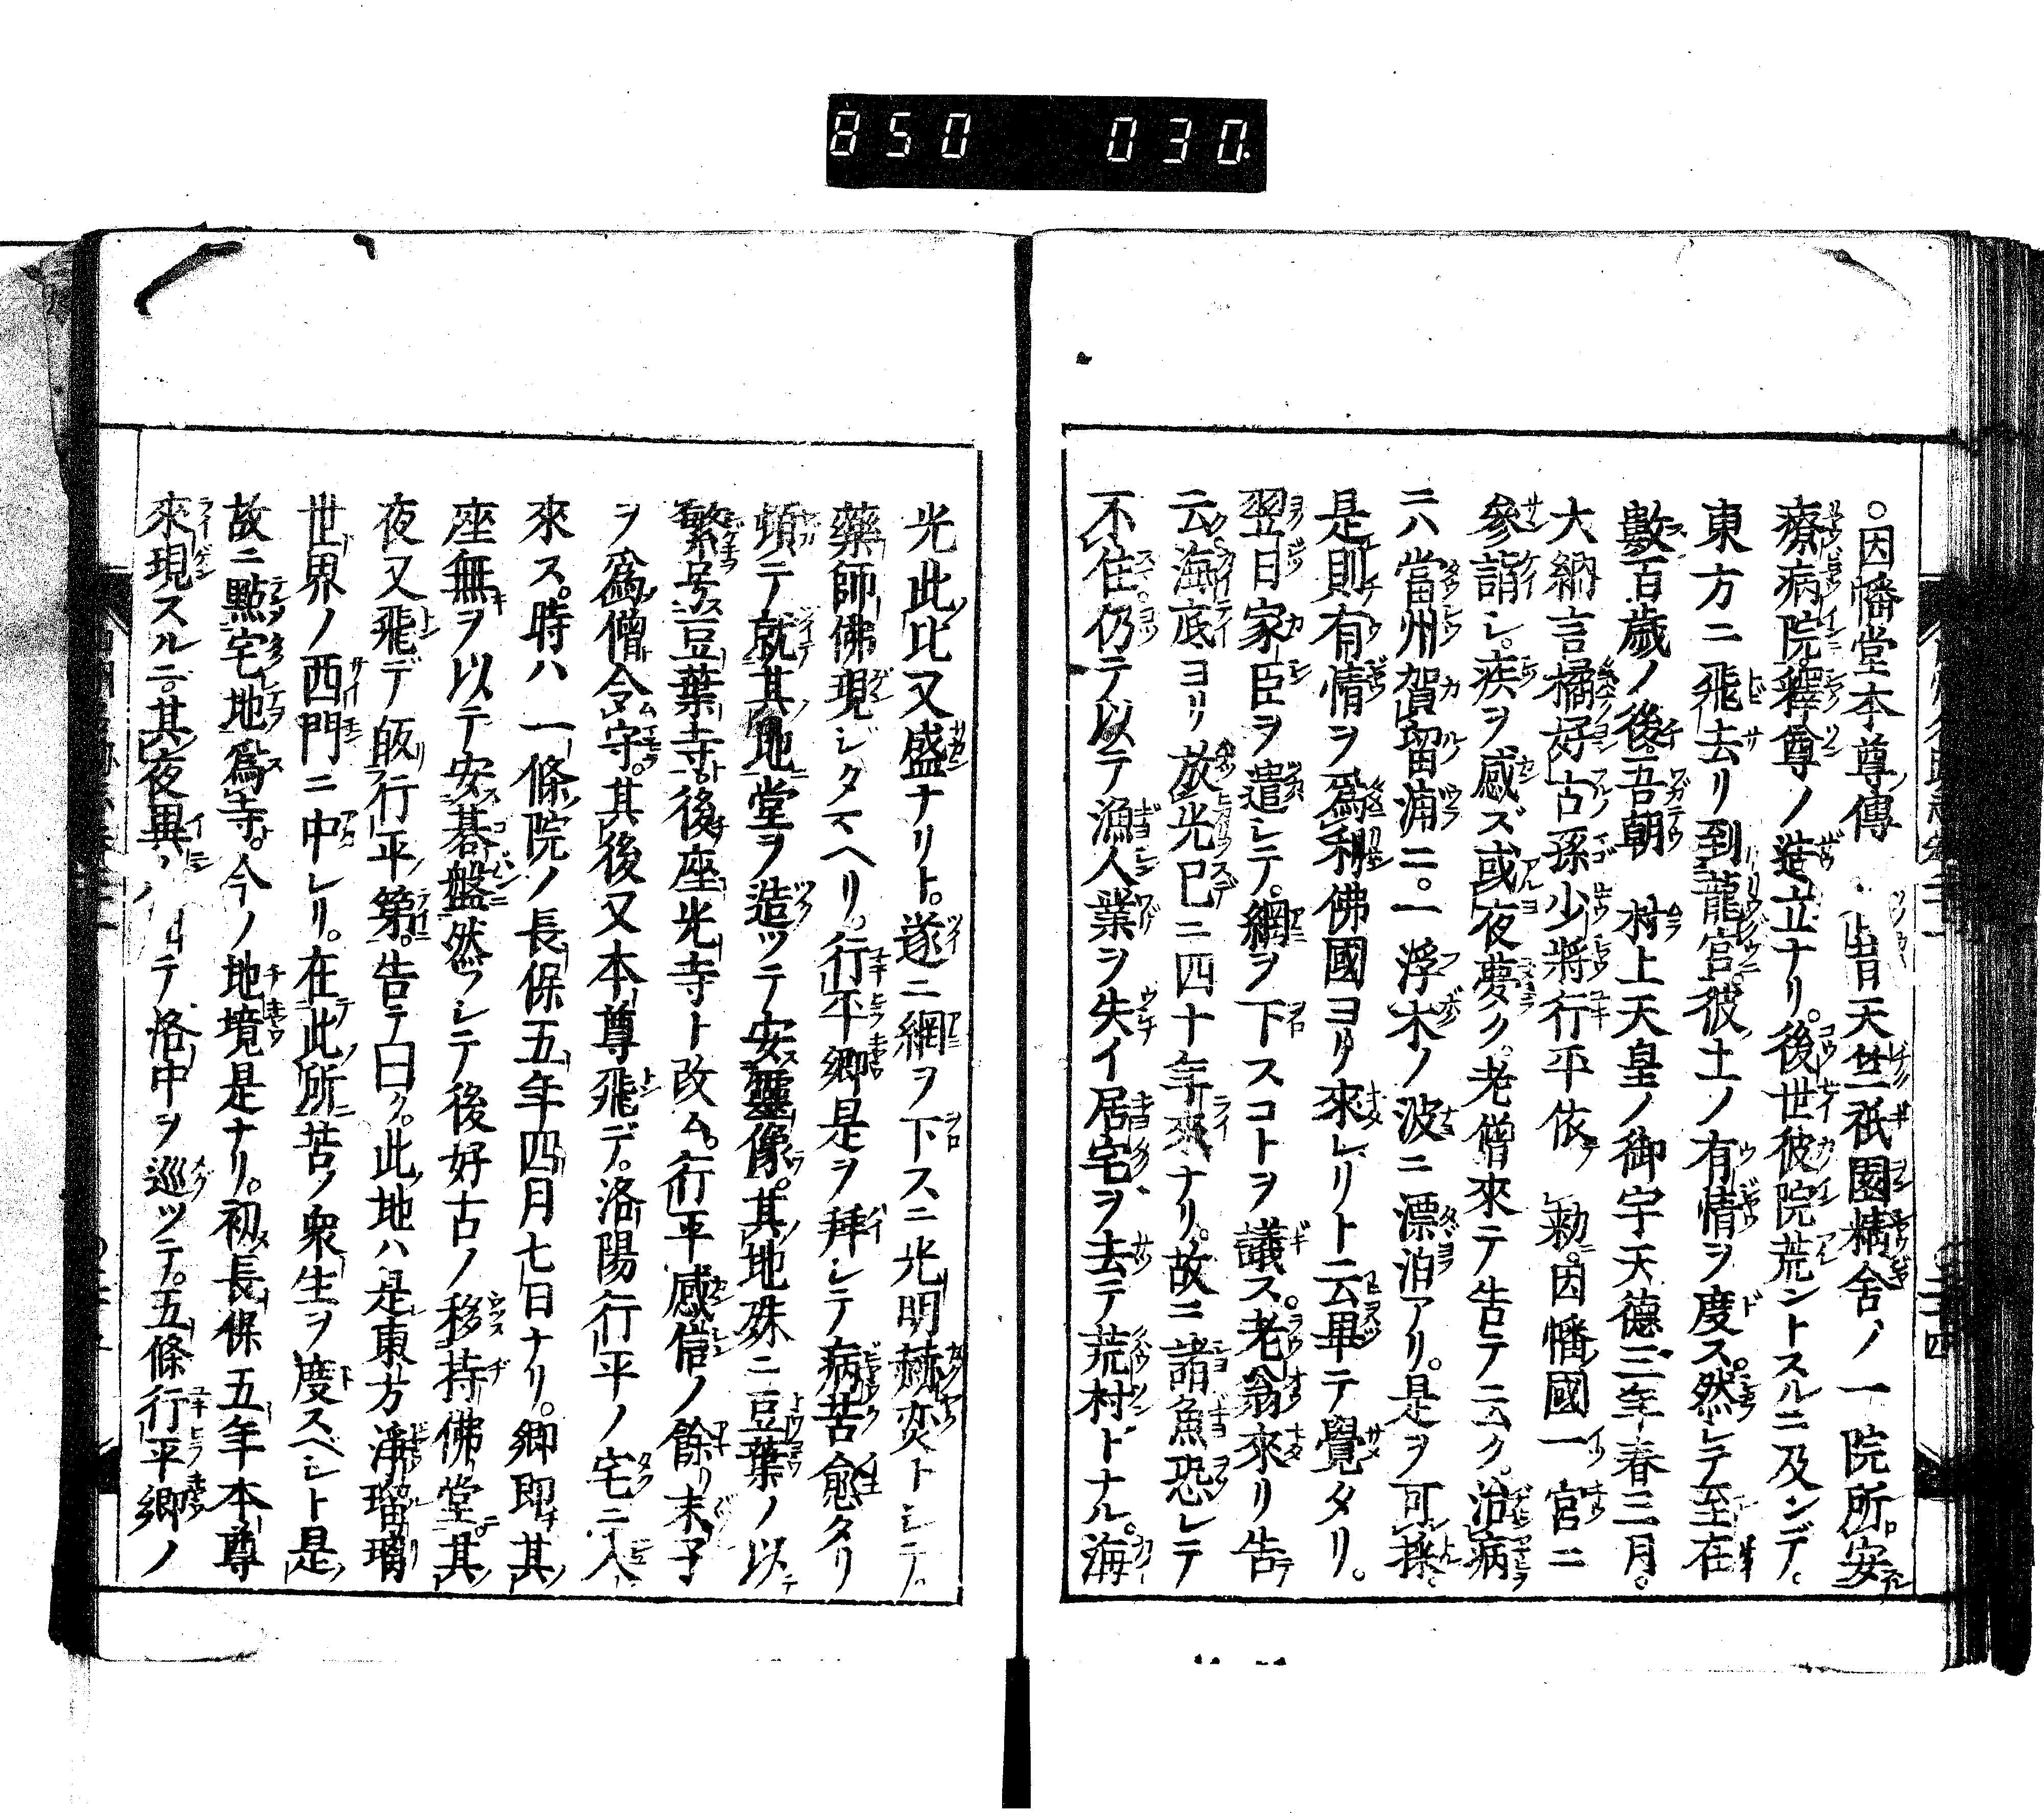 850 030
。因幡堂本尊傳 昔天竺祇園精舍ノ一院所。安
療病院。釋尊ノ造立ナリ。後世彼院荒ントスルニ及ンデ。
東方ニ飛去リ到龍宮。彼土ノ有情ヲ度ス。然シテ至在
數百歳ノ後。吾朝 村上天皇ノ御宇天德三年春三月。
大納言橘好古孫少將行平依 勅。因幡國一宮ニ
參詣シ。疾ヲ感ズ或夜夢ク。老僧來テ告テニムク。治病
ニハ當州賀留浦ニ。一浮木ノ波ニ漂泊アリ。是ヲ可採。
是則有情ヲ爲利佛國ヨリ來レリト云畢テ覺タリ。
翌日家臣ヲ遣シテ。網ヲ下スコトヲ議ス。老翁來リ告
云。海底ヨリ放光已ニ四十年來ナリ。故ニ諸魚恐レテ
不住仍テ以テ漁人業ヲ失イ居宅ヲ去テ荒村トナル。海
光此比又盛ナリト。遂ニ網ヲ下スニ光明赫奕トシテ。
藥師佛現ジタマヘリ。行平卿是ヲ拜シテ病苦愈タリ
頓テ就其地堂ヲ造ツテ安靈像。其地殊ニ豆葉ノ以
繁号豆葉寺。後座光寺ト改ム。行平感信ノ餘リ末子
ヲ爲僧令守。其後又本尊飛デ。洛陽行平ノ宅ニ入
來ス。時ハ一條院ノ長保五年四月七日ナリ。卿即其
座無ヲ以テ安碁盤然フシテ後好古ノ移持佛堂。其
夜又飛デ皈行平第。告テ曰ク。此地ハ是東方淨瑠璃
世界ノ西門ニ中レリ。在此所苦ノ衆生ヲ度スベシト是
故ニ點宅地爲寺。今ノ地境是ナリ。初長保五年本尊
來現スルニ。其夜異 テ洛中ヲ巡ツテ。五條行平卿ノ